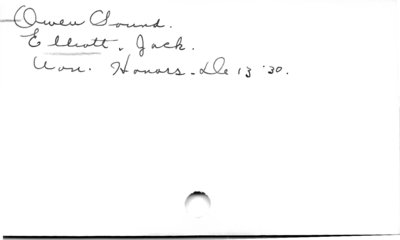 Owen Sound.
Elliott. Jack.
Won. Honors. De 13 '30.